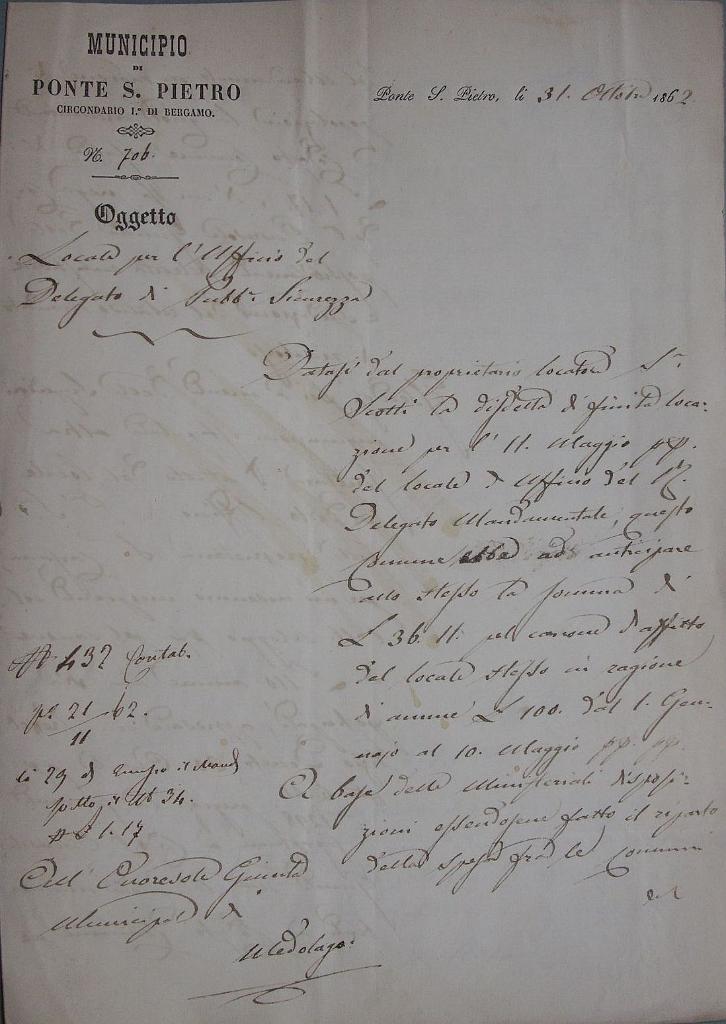 MUNICIPIO
DI
PONTE S. PIETRO
CIRCONDARIO I.° DI BERGAMO.
N. 706.
Ponte S. Pietro, li 31. Ottobre 1862
Oggetto
Locale per l'Ufficio del
Delegato di Pubb.a Sicurezza
Datasi dal proprietario locatore S.r
Scotti la disdetta di finita loca-
zione per l'11. Maggio pp.
del locale d'Ufficio del R.
Delegato Mandamentale, questo
Comune ebbe ad anticipare
allo stesso la somma di
L 36.11. pel canone d'affitto
del locale stesso in ragione
di annue L 100. dal 1. Gen-
najo al 10. Maggio pp. pp.
A base delle Ministeriali disposi-
zioni essendosene fatto il riparto
della spesa fra le Comuni
del
N 432 Contab.
21/11 62.
li 29 d.
sotto il N 34.
1.17
All'Onorevole Giunta
Municipale di
Medolago.